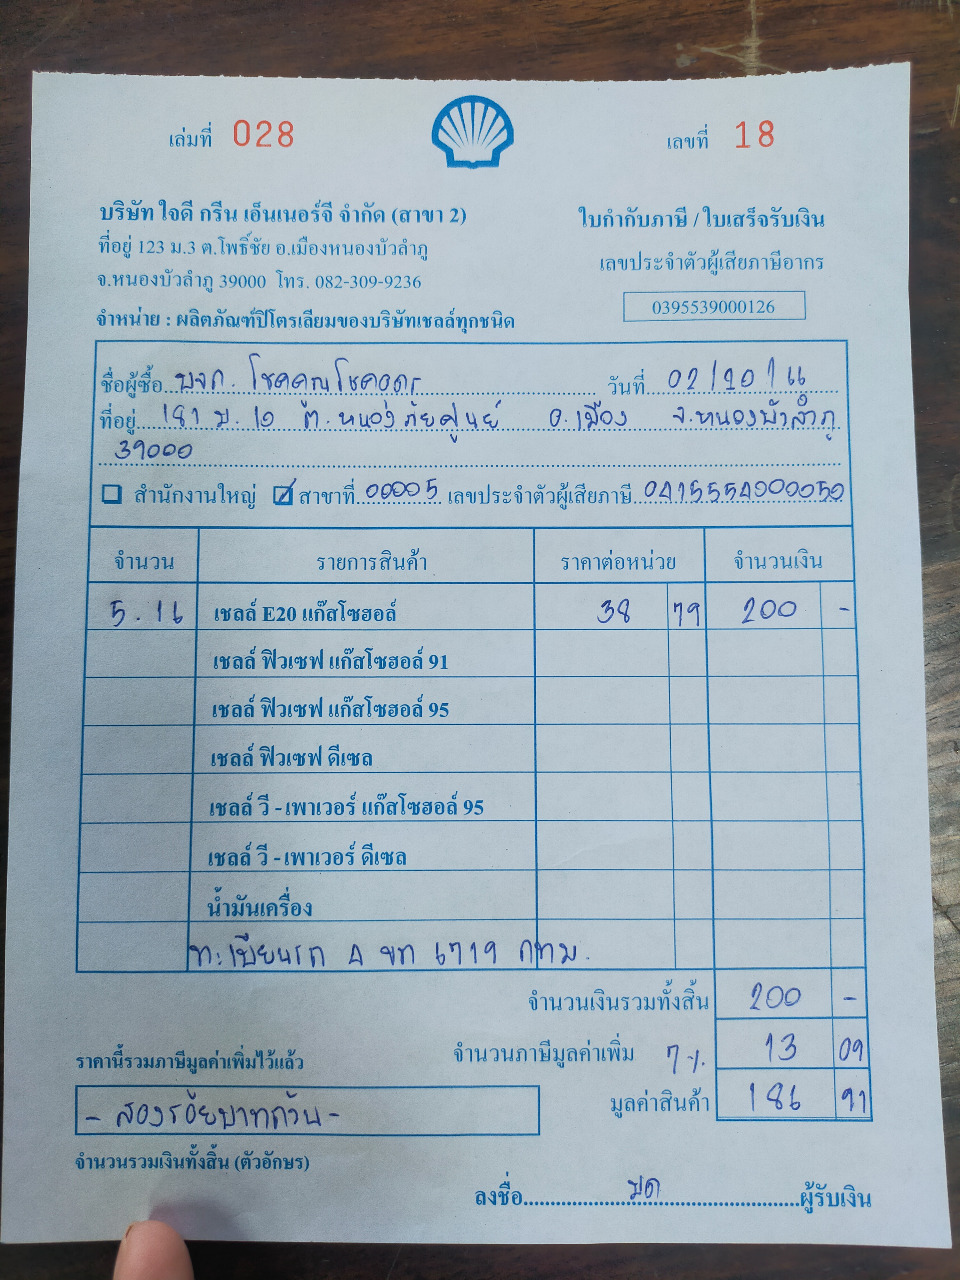 เล่มที่ 028
เลขที่ 18
บริษัท ใจดี กรีน เอ็นเนอร์จี จำกัด (สาขา 2)
ใบกำกับภาษี / ใบเสร็จรับเงิน
ที่อยู่ 123 ม.3 ต.โพธิ์ชัย อ.เมืองหนองบัวลำภู
เลขประจำตัวผู้เสียภาษีอากร
จ.หนองบัวลำภู 39000 โทร. 082-309-9236
0395539000126
จำหน่าย : ผลิตภัณฑ์ปิโตรเลียมของบริษัทเชลล์ทุกชนิด
ชื่อผู้ซื้อ บจก. โชคคูณโชคอุดร วันที่ 02/10/66
ที่อยู่ 181 ม.10 ต.หนองภัยศูนย์ อ.เมือง จ.หนองบัวลำภู
39000
สำนักงานใหญ่ สาขาที่ 00005 เลขประจำตัวผู้เสียภาษี 0415554000050
จำนวน รายการสินค้า ราคาต่อหน่วย จำนวนเงิน
5.16 เชลล์ E20 แก๊สโซฮอล์ 38 79 200 -
เชลล์ ฟิวเซฟ แก๊สโซฮอล์ 91
เชลล์ ฟิวเซฟ แก๊สโซฮอล์ 95
เชลล์ ฟิวเซฟ ดีเซล
เชลล์ วี - เพาเวอร์ แก๊สโซฮอล์ 95
เชลล์ วี - เพาเวอร์ ดีเซล
น้ำมันเครื่อง
ทะเบียนรถ 4 ขท 6719 กทม.
จำนวนเงินรวมทั้งสิ้น 200 -
ราคานี้รวมภาษีมูลค่าเพิ่มไว้แล้ว จำนวนภาษีมูลค่าเพิ่ม 7% 13 09
- สองร้อยบาทถ้วน - มูลค่าสินค้า 186 91
จำนวนรวมเงินทั้งสิ้น (ตัวอักษร)
ลงชื่อ ผู้รับเงิน